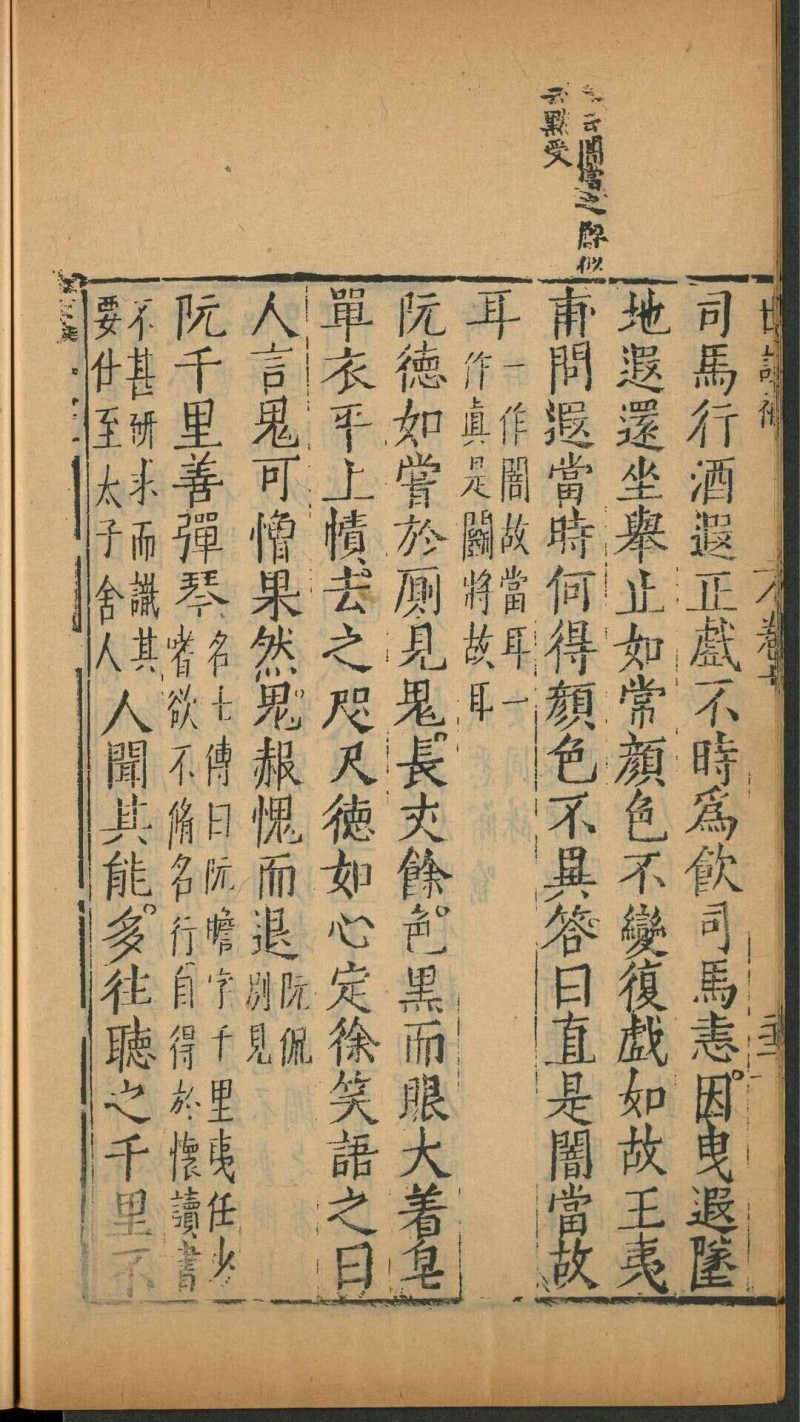 世說補 卷十
云闇當之解似
云默受
司馬行酒遐正戲不時為飲司馬恚因曳遐墜
地遐還坐舉止如常顏色不變復戲如故王夷
甫問遐當時何得顏色不異答曰直是闇當故
耳一作闇故當耳一
作真是鬭將故耳
阮德如嘗於厠見鬼長丈餘色黑而眼大着皂
單衣平上幘去之咫尺德如心定徐笑語之曰
人言鬼可憎果然鬼赧愧而退阮侃
別見
阮千里善彈琴名士傳曰阮瞻字千里夷任少
嗜欲不脩名行自得於懷讀書
不甚研求而識其
要仕至太子舍人人聞其能多往聽之千里不